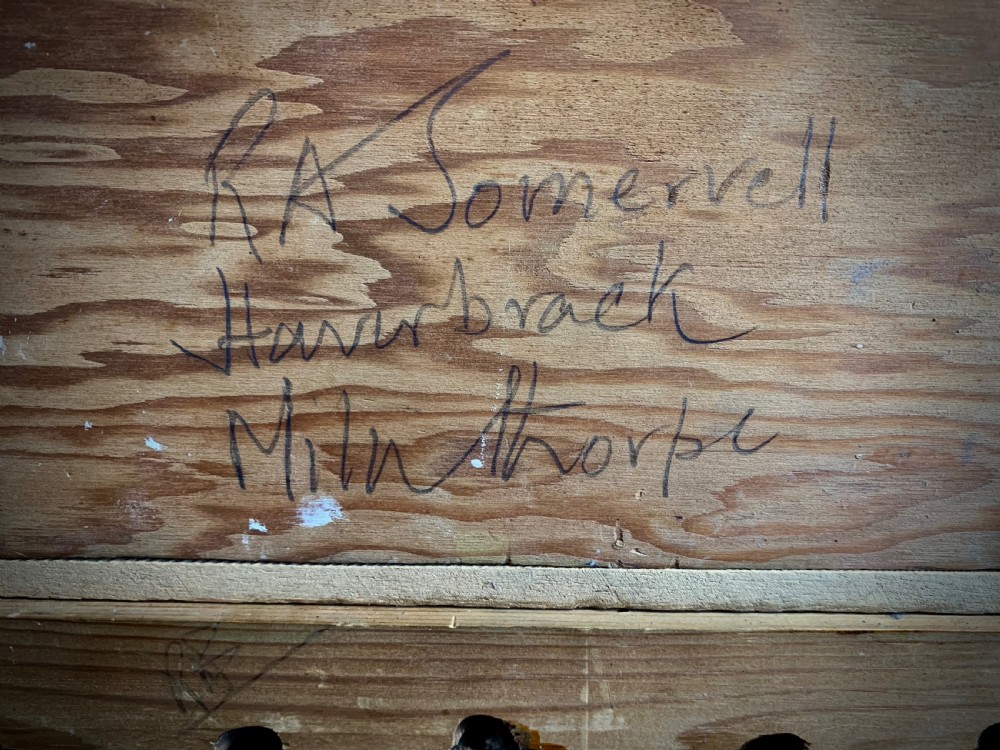 RA Somervell
Haverbrack
Milnthorpe